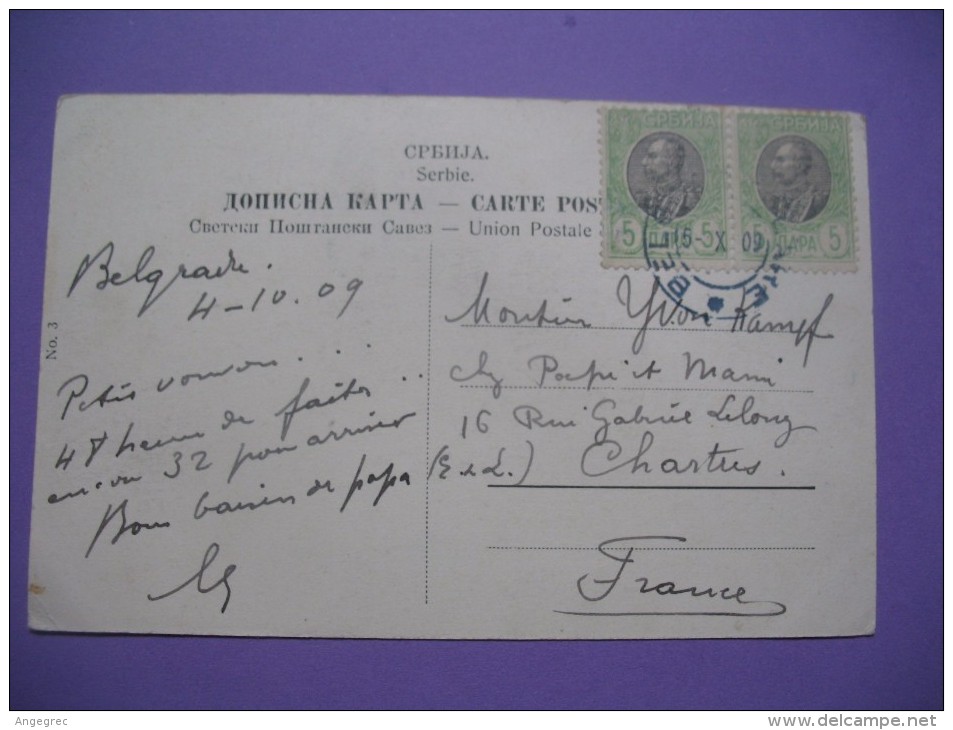 СРБИЈА.
Serbie.
ДОПИСНА КАРТА — CARTE POS
Светски Поштански Савез — Union Postale
СРБИЈА
5 ПАРА 5
СРБИЈА
ПАРА 5
5-X 09
No. 3
Belgrade.
4-10.09
Petits
48 heures de faites
encore 32 pour arriver
Bons baisers de papa
Monsieur Yvon Kampf
chez Papé et Mami
16 Rue Gabriel Lelong
Chartres.
(E & L.)
France
Angegrec
www.delcampe.net